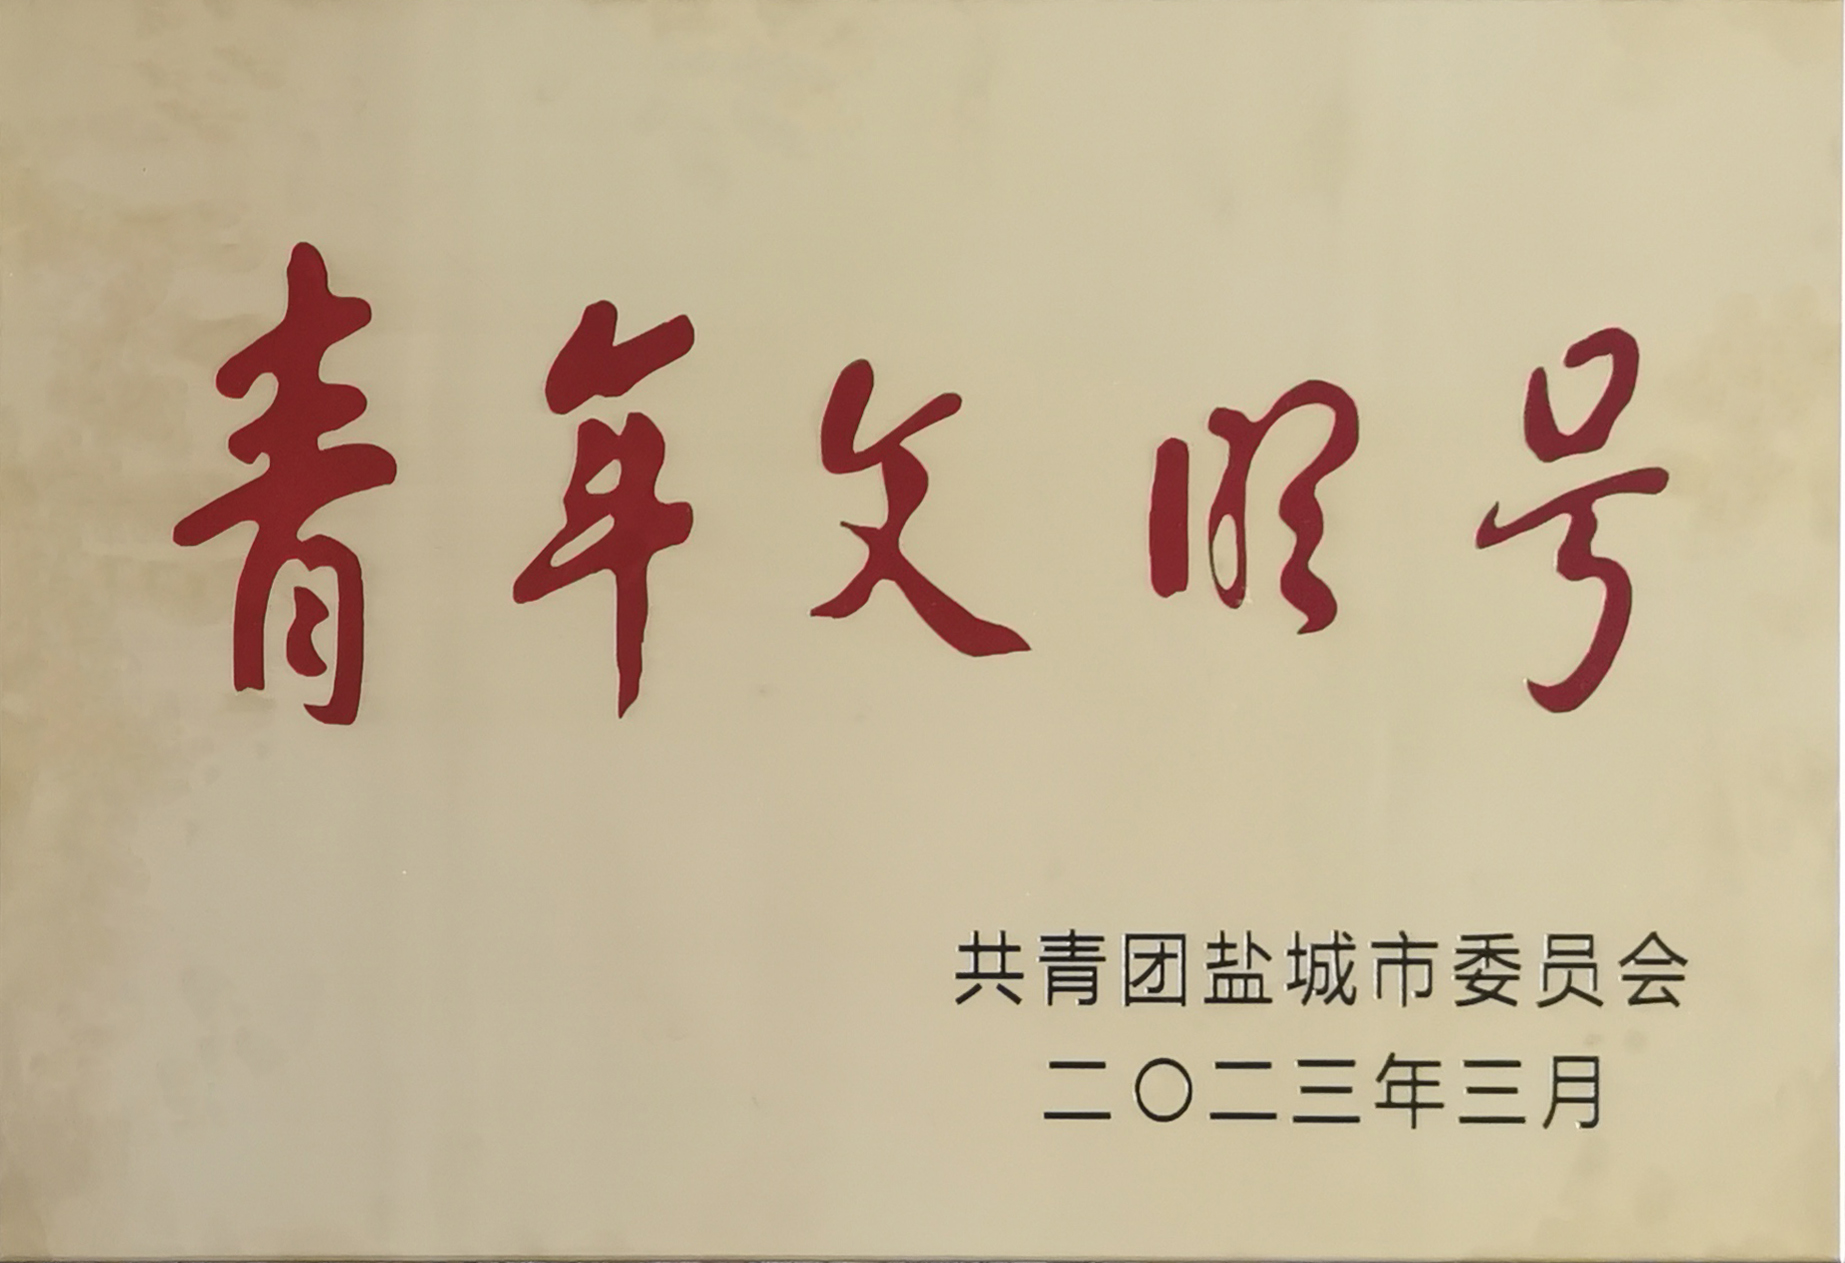 青年文明号
共青团盐城市委员会
二〇二三年三月